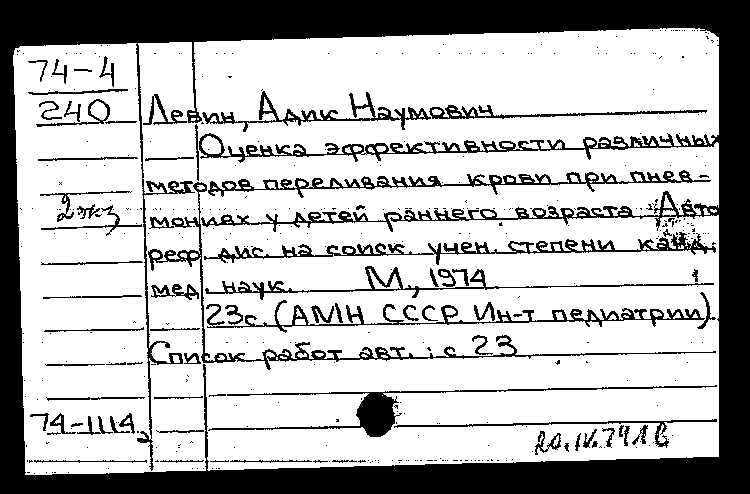 74-4
240
Левин, Адик Наумович
Оценка эффективности различных
методов переливания крови при пнев-
2 экз
мониях у детей раннего возраста. Авто
реф. дис. на соиск. учен. степени канд.
мед. наук. М., 1974
23с. (АМН СССР. Ин-т педиатрии).
Список работ авт.: с. 23
74-1114
20.IV.74